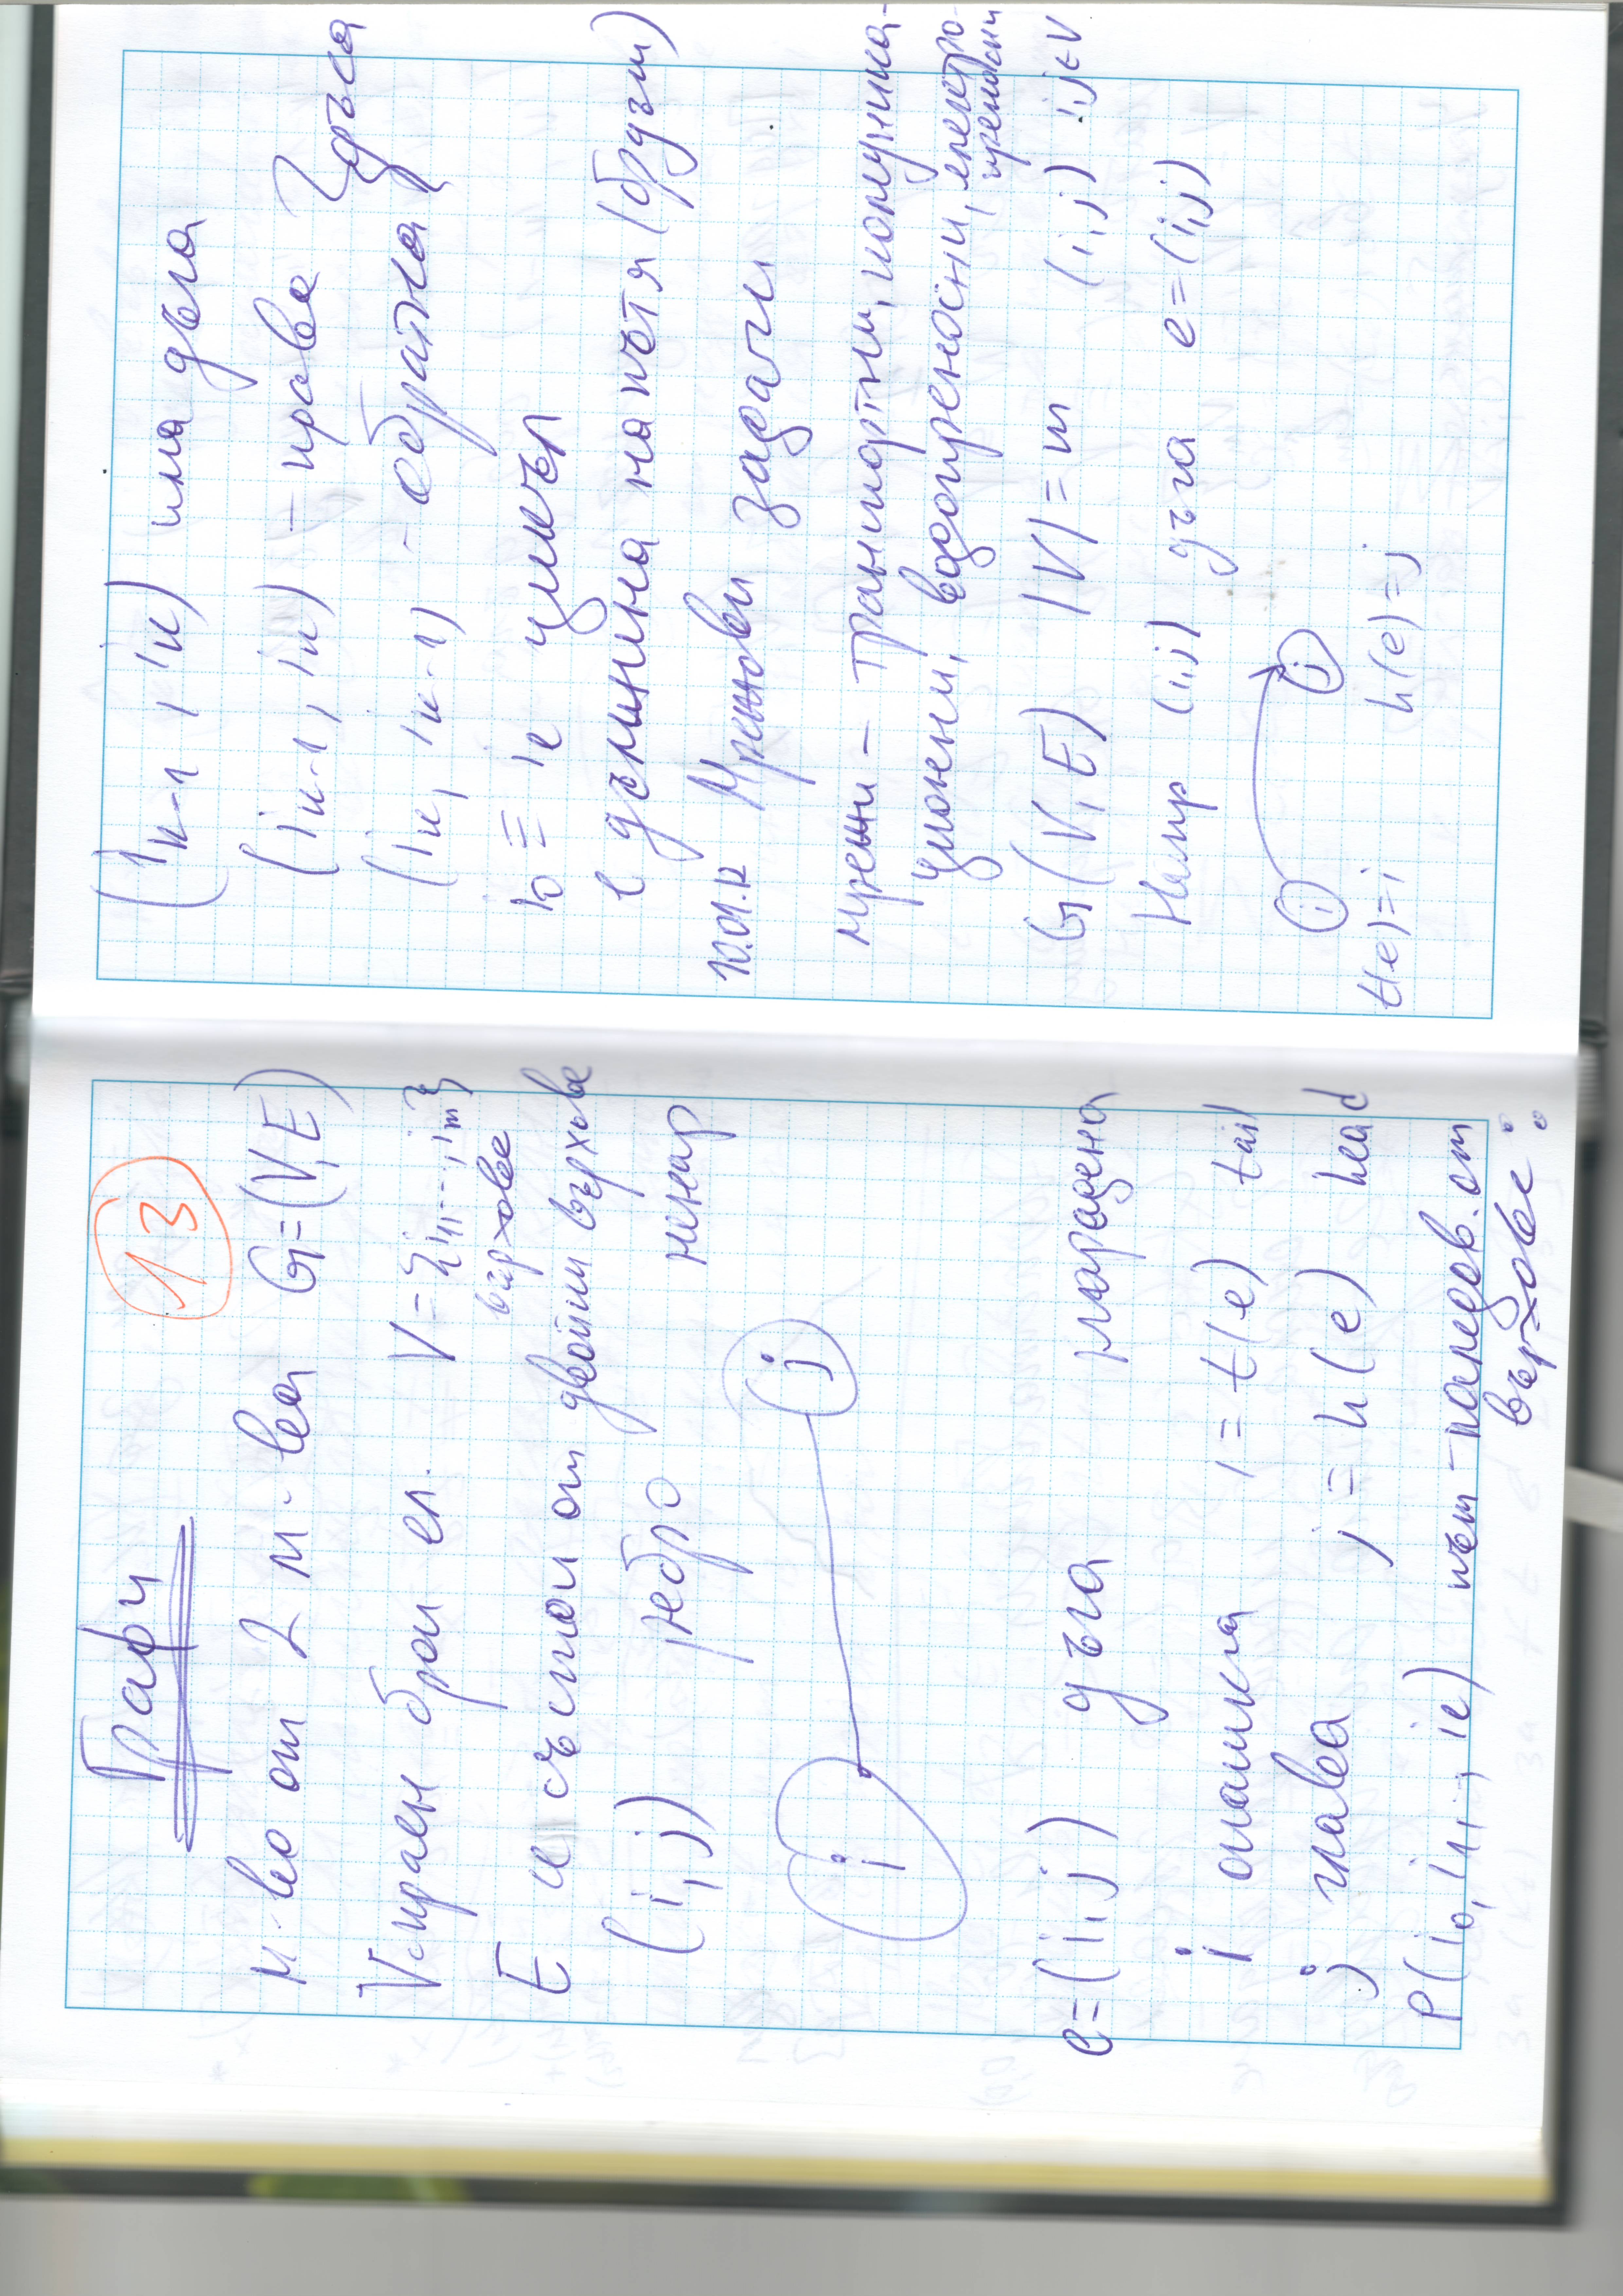 Граф
13
м-во от 2 м-ва G=(V,E)
V-краен брой ел. V={i1,...,im}
върхове
E се състои от двойки върхове
(i,j) ребро ненар
i j
e=(i,j) дъга наредена
i опашка i=t(e) tail
j глава j=h(e) head
P(i0,i1,...,ie) път-послeдов. от
върхове:
(ik-1,ik) има дъга
(ik-1,ik) - права
(ik,ik-1) - обратна
дъга
i0=ie цикъл
l дължина на пътя (бр дъги)
к.о.к Мрежови задачи
мрежи - транспортни, комуника-
ционни, водопреносни, електро-
преносни
G(V,E) |V|=m (i,j) i,j∈V
Напр (i,j) дъга e=(i,j)
i j
t(e)=i h(e)=j